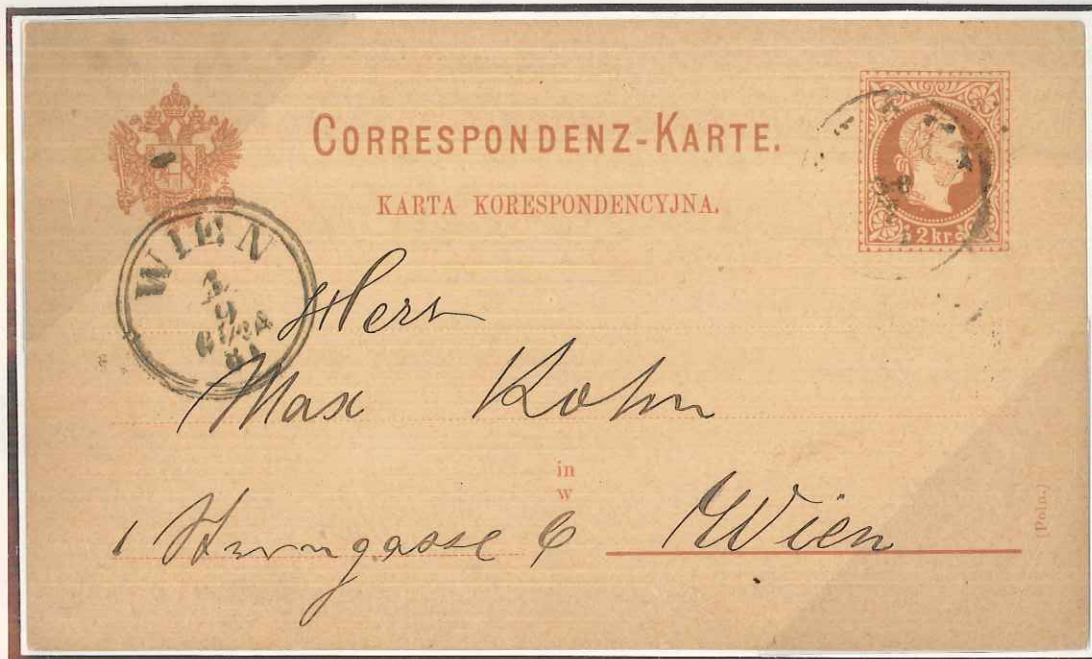 CORRESPONDENZ-KARTE.
KARTA KORESPONDENCYJNA.
2 kr.
WIEN
1
9
6 1/2 A
81
Herrn
Max Kohn
in
w
1 Sterngasse 6 Wien
(Poln.)